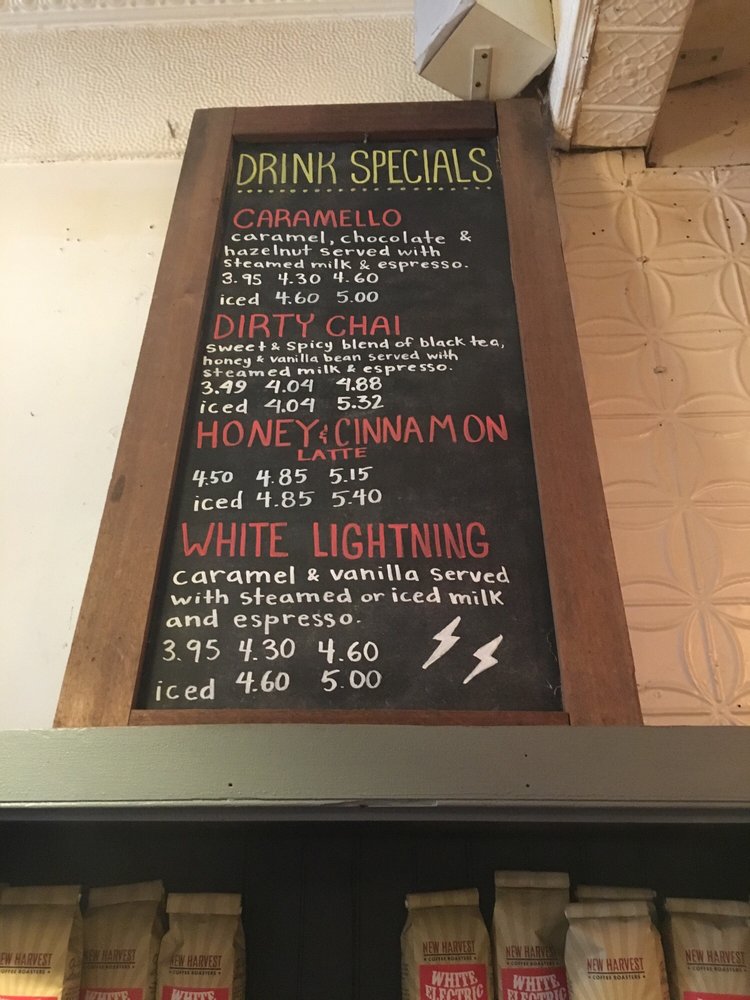 DRINK SPECIALS
CARAMELLO
caramel, chocolate &
hazelnut served with
steamed milk & espresso.
3.95 4.30 4.60
iced 4.60 5.00
DIRTY CHAI
sweet & spicy blend of black tea,
honey & vanilla bean served with
steamed milk & espresso.
3.49 4.04 4.88
iced 4.04 5.32
HONEY & CINNAMON
LATTE
4.50 4.85 5.15
iced 4.85 5.40
WHITE LIGHTNING
caramel & vanilla served
with steamed or iced milk
and espresso.
3.95 4.30 4.60
iced 4.60 5.00
NEW HARVEST
COFFEE ROASTERS
WHITE
NEW HARVEST
COFFEE ROASTERS
WHITE
ELECTRIC
WHITE
ELECTRIC
NEW HARVEST
COFFEE ROASTERS
NEW HARVEST
COFFEE ROASTERS
WHITE